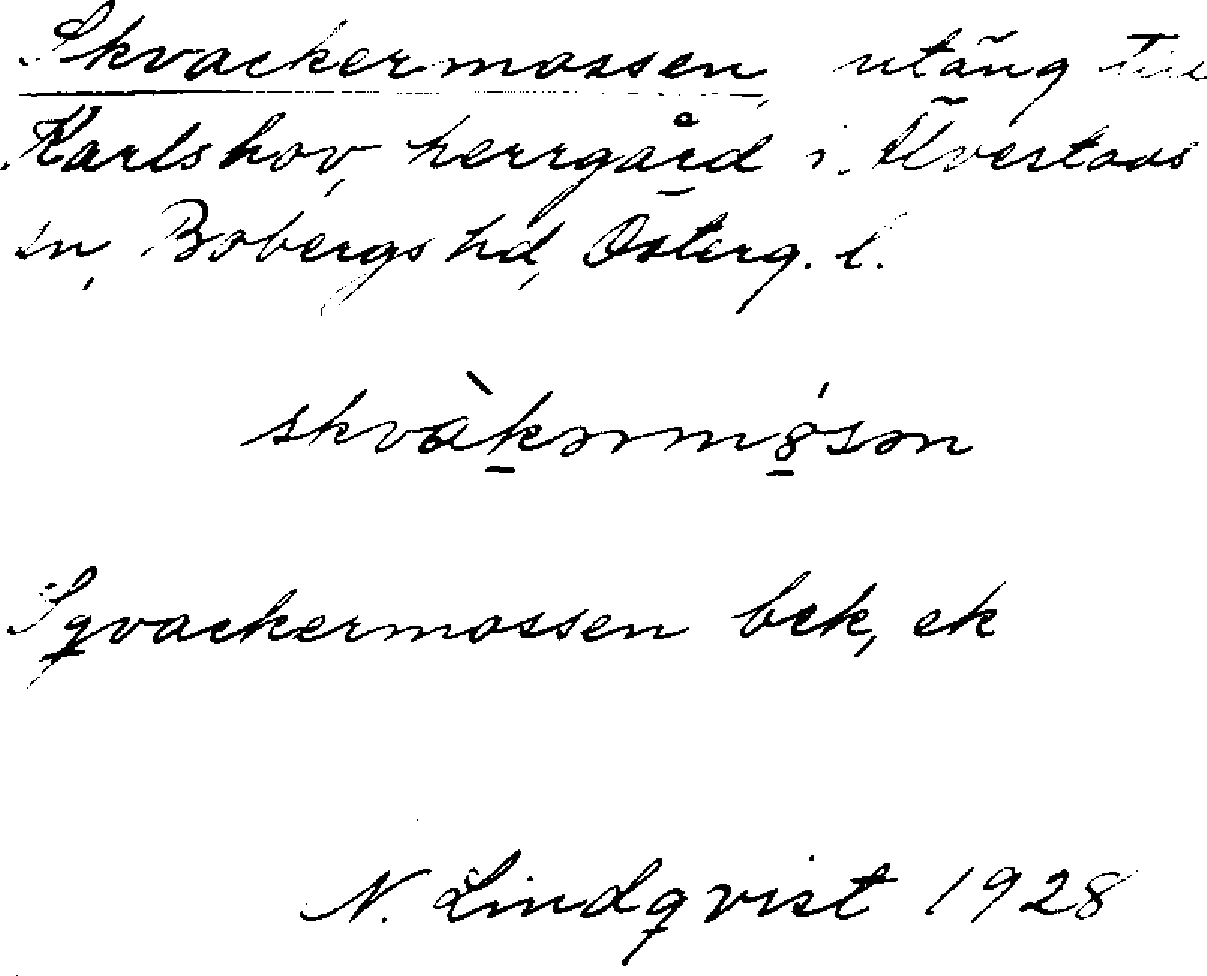 Skvackermossen, utäng till
Karlshov, herrgård i Älvestads
sn, Bobergs hd, Österg. l.
skvàkərmǿsən
Sqvackermossen bek, ek
N. Lindqvist 1928